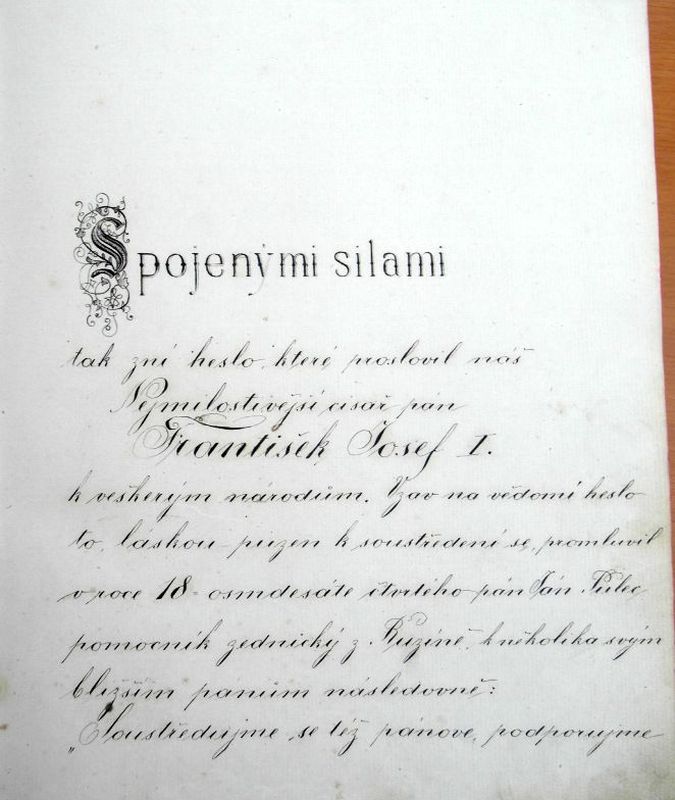 Spojenými silami
tak zní heslo, které proslovil náš
Nejmilostivější císař pán
František Josef I.
k veškerým národům. Vzav na vědomí heslo
to, láskou puzen k soustředení se, promluvil
v roce 18 osmdesáte čtvrtého pán Ján Pulec
pomocník zednický z Ruzině, k několika svým
bližším pánům následovně:
„Soustřeďujme se též pánove, podporujme